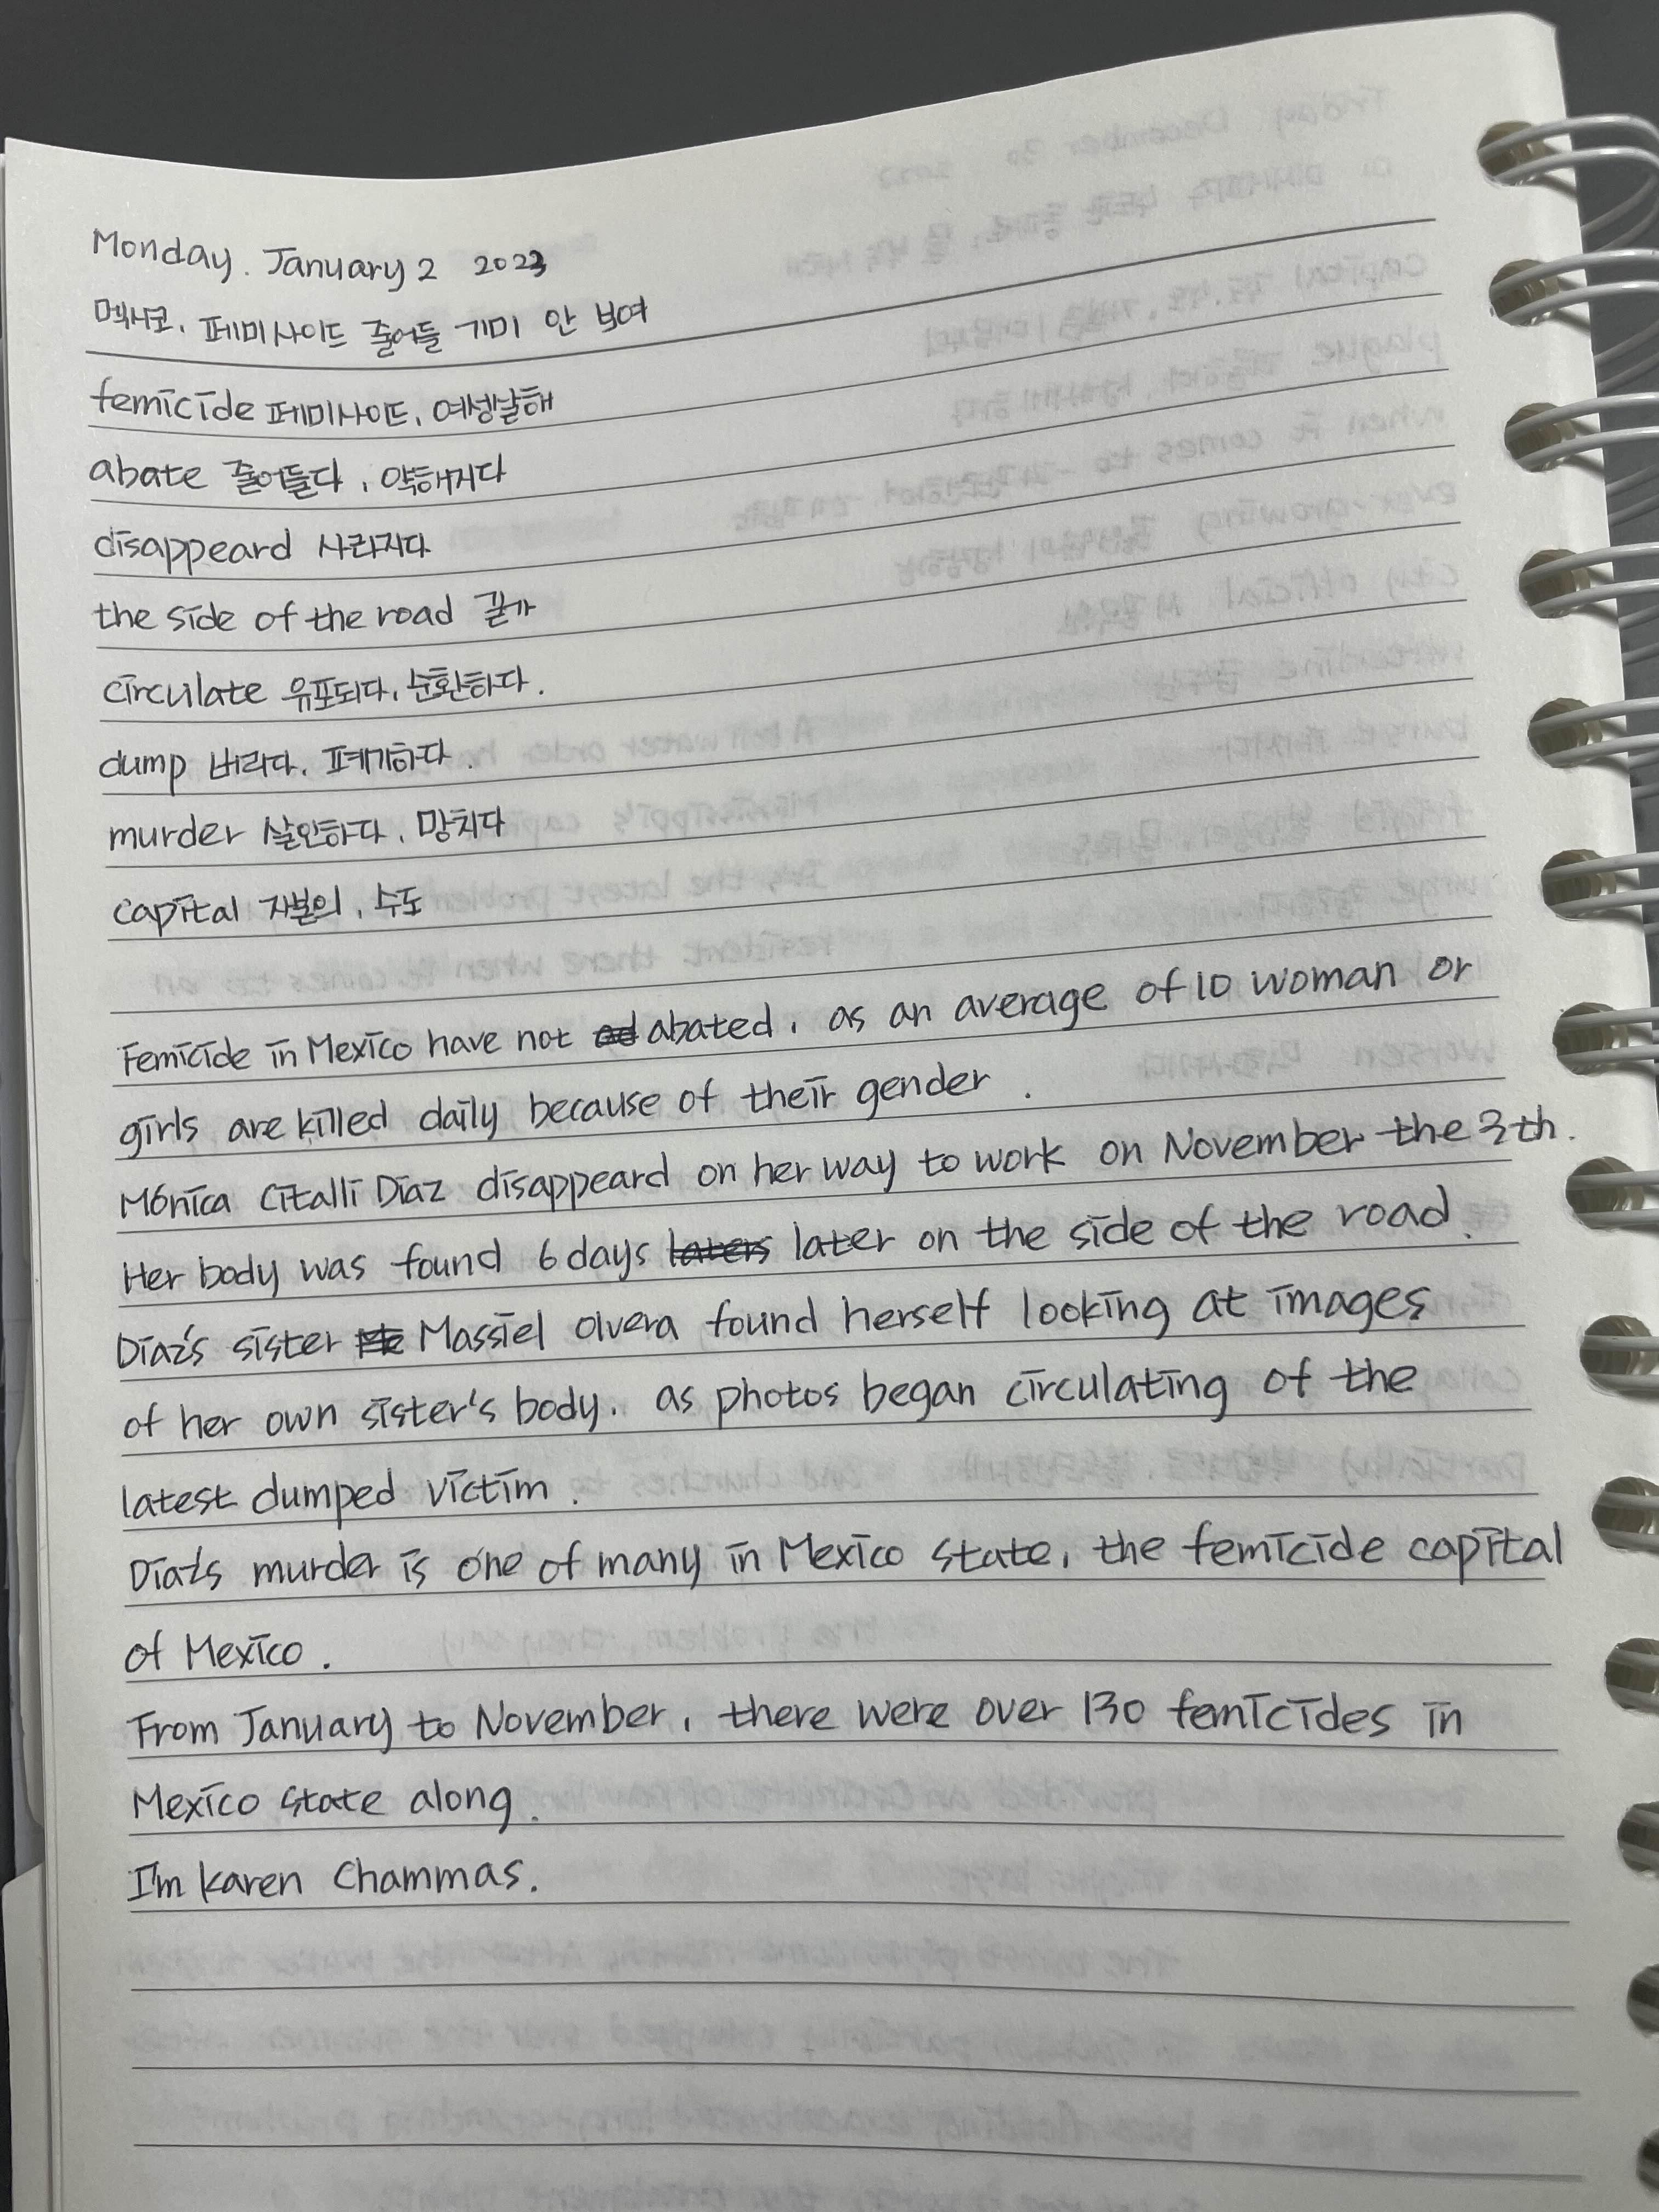 Monday. January 2 2023
멕시코, 페미사이드 줄어들 기미 안 보여
femicide 페미사이드, 여성살해
abate 줄어들다, 약해지다
disappeard 사라지다
the side of the road 길가
circulate 유포되다, 순환하다.
dump 버리다, 폐기하다.
murder 살인하다, 망치다
capital 자본의, 수도
Femicide in Mexico have not abated, as an average of 10 woman or
girls are killed daily because of their gender.
Mónica Citalli Díaz disappeard on her way to work on November the 3th.
Her body was found 6 days later on the side of the road.
Díaz's sister Massiel Olvera found herself looking at images
of her own sister's body, as photos began circulating of the
latest dumped victim.
Díaz's murder is one of many in Mexico state, the femicide capital
of Mexico.
From January to November, there were over 130 femicides in
Mexico state along.
I'm Karen Chammas.